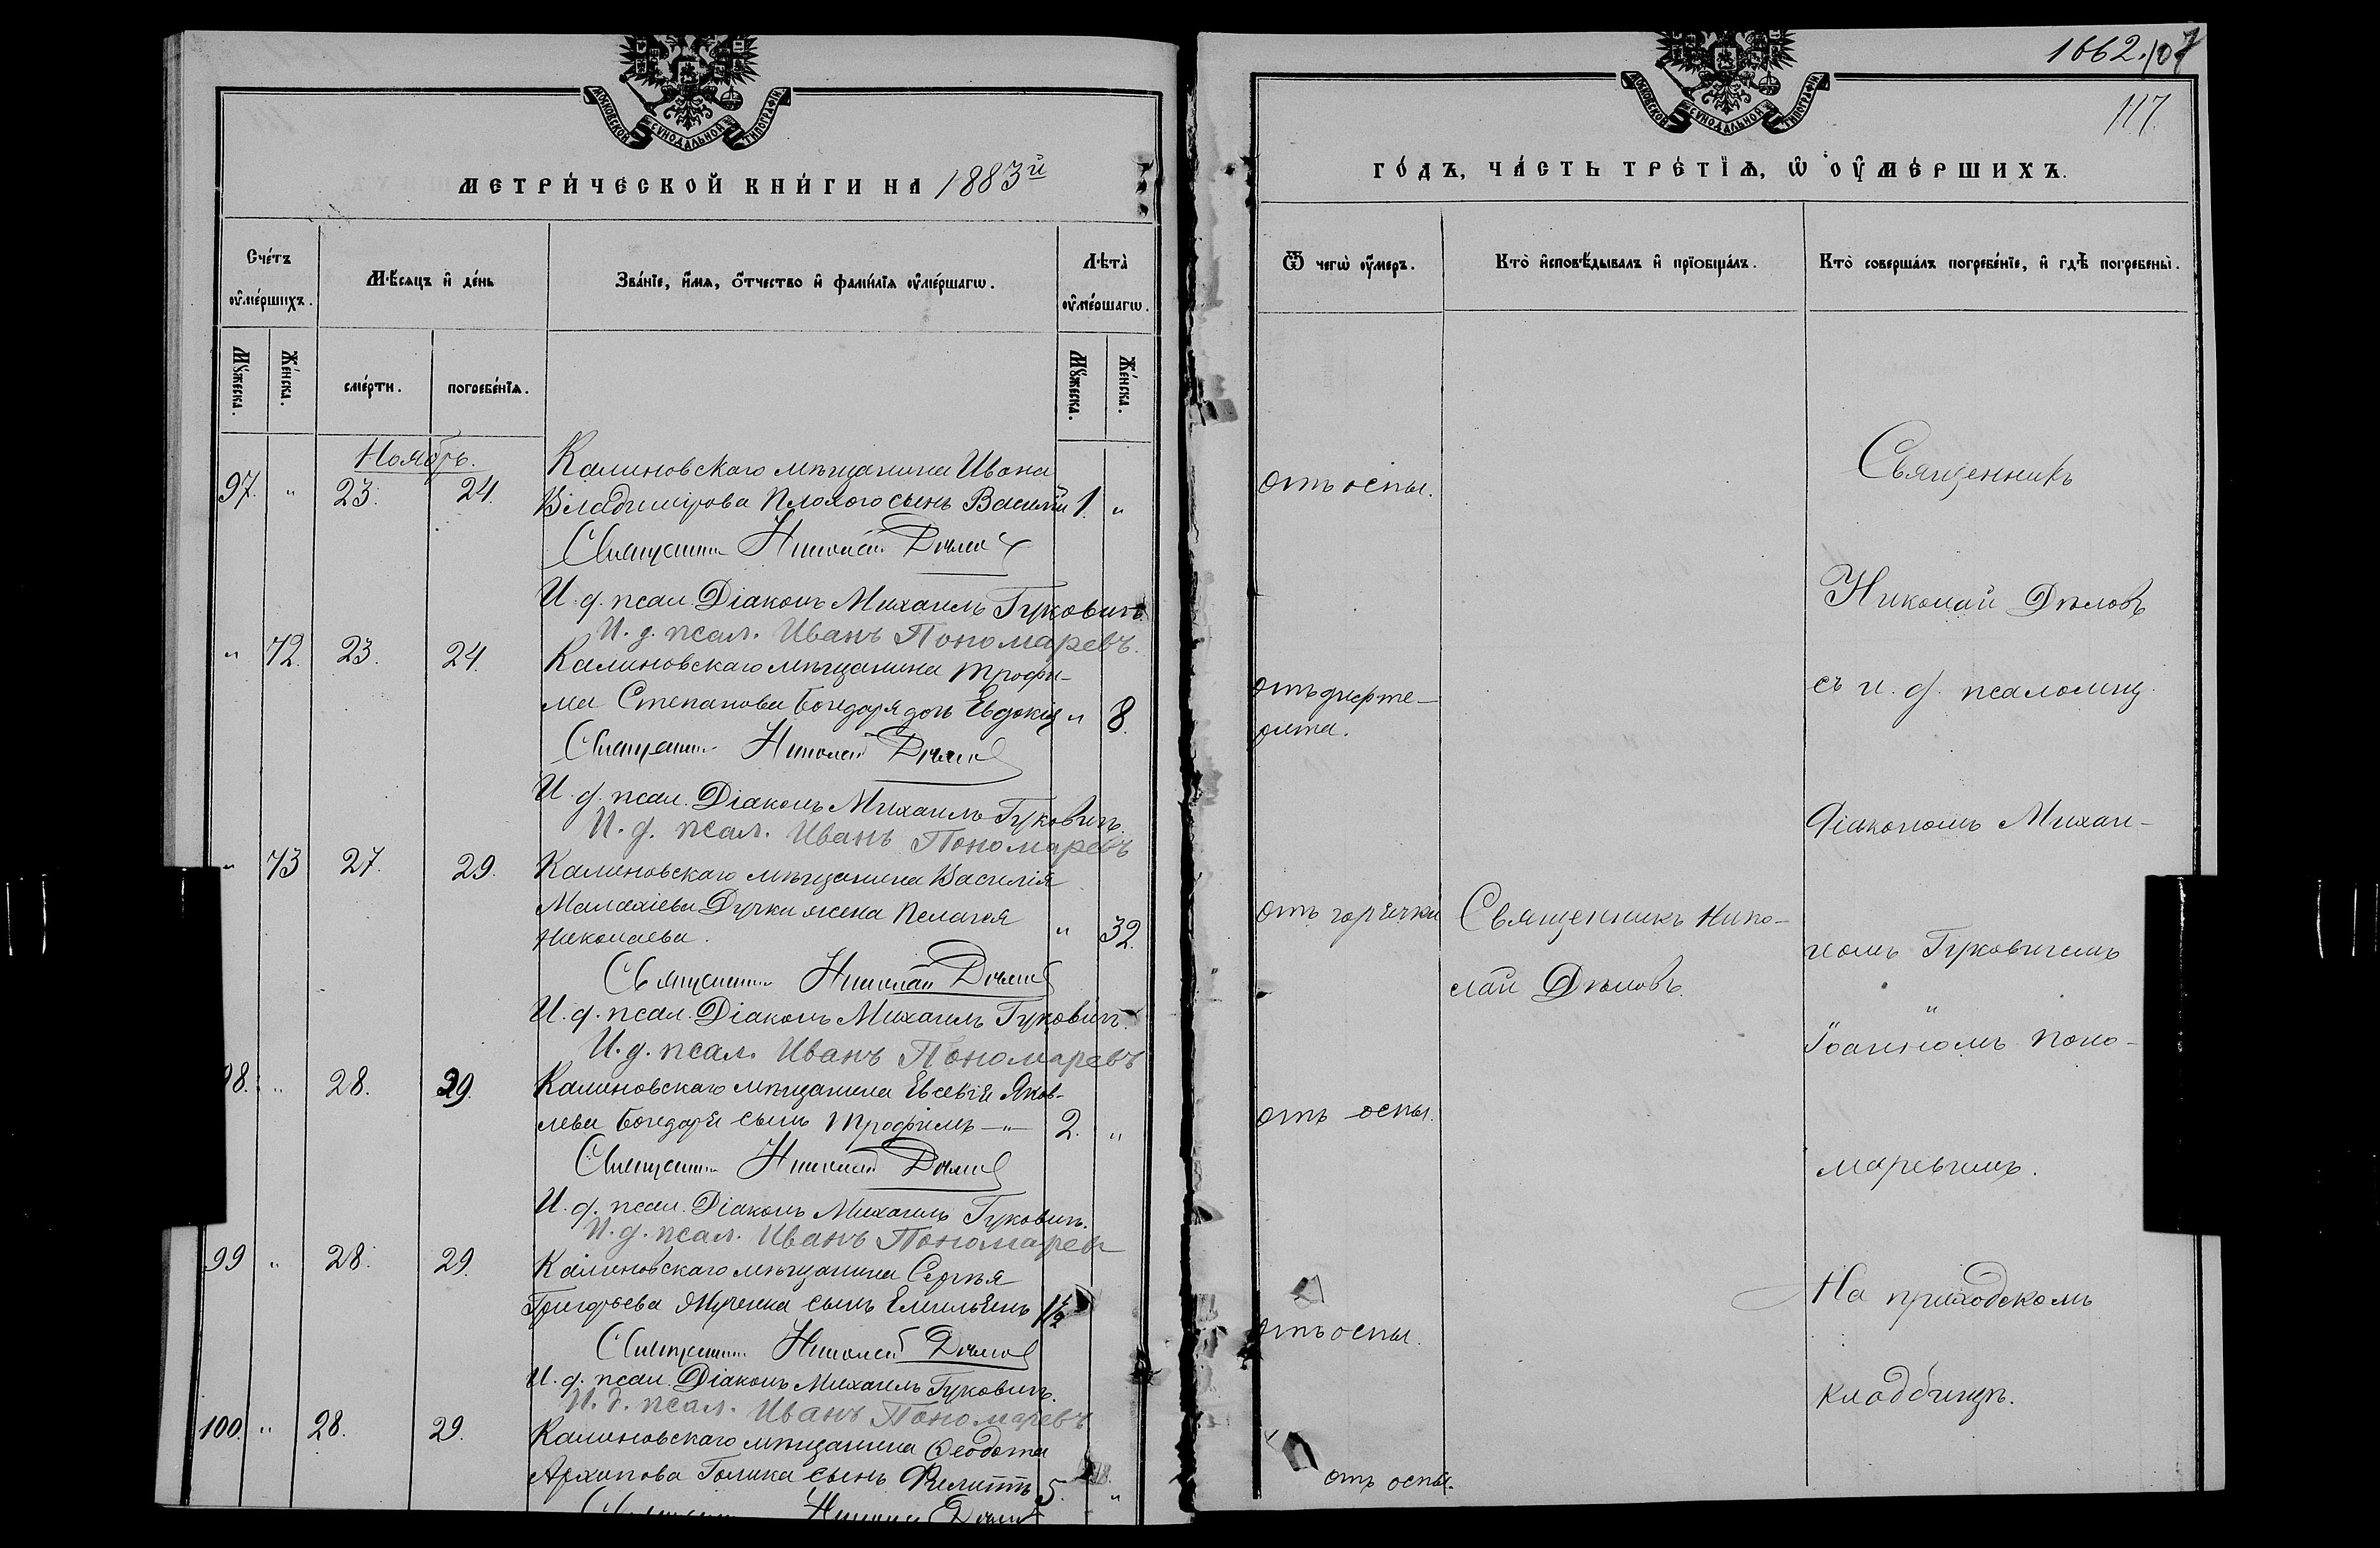 МОСКОВСКОЙ СѴНОДАЛЬНОЙ ТИПОГРАФІИ
МЕТРИ́ЧЕСКОЙ КНИ́ГИ НА 1883й
Сче́тъ ᲂу҆ме́ршихъ.
Мѣ́сяцъ и҆ де́нь
Зва́нїе, и҆́мѧ, ѻ҆́тчество и҆ фами́лїѧ ᲂу҆ме́ршагѡ.
Лѣта̀ ᲂу҆ме́ршагѡ.
Мꙋ́жеска.
Же́нска.
сме́рти.
погребе́нїѧ.
Мꙋ́жеска.
Же́нска.
Ноябрь.
Калиновскаго мѣщанина Ивана
97. " 23. 24. Владимірова Плохого сынъ Василій 1. "
Священникъ Николай Дѣловъ
И. д. псал. Діаконъ Михаилъ Гуковичъ
И. д. псал. Иванъ Пономаревъ.
" 72. 23. 24. Калиновскаго мѣщанина Трофи-
ма Степанова Бондаря дочь Евдокія " 8.
Священникъ Николай Дѣловъ
И. д. псал. Діаконъ Михаилъ Гуковичъ.
И. д. псал. Иванъ Пономаревъ
" 73 27. 29. Калиновскаго мѣщанина Василія
Малахіева Дучки жена Пелагея
Николаева. " 32.
Священникъ Николай Дѣловъ
И. д. псал. Діаконъ Михаилъ Гуковичъ.
И. д. псал. Иванъ Пономаревъ
98. " 28. 29. Калиновскаго мѣщанина Евсевія Яков-
лева Бондаря сынъ Трофимъ —"— 2. "
Священникъ Николай Дѣловъ
И. д. псал. Діаконъ Михаилъ Гуковичъ.
И. д. псал. Иванъ Пономаревъ
99 " 28. 29. Калиновскаго мѣщанина Сергѣя
Григорьева сынъ Емильянъ 1½
Священникъ Николай Дѣловъ
И. д. псал. Діаконъ Михаилъ Гуковичъ.
И. д. псал. Иванъ Пономаревъ
100. " 28. 29. Калиновскаго мѣщанина Ѳеодота
Архипова Голика сынъ Филиппъ 5. "
Священникъ Николай Дѣловъ
1662.107
117
МОСКОВСКОЙ СѴНОДАЛЬНОЙ ТИПОГРАФІИ
ГО́ДЪ, ЧА́СТЬ ТРЕ́ТЇѦ, Ѡ҆ ОУ҆МЕ́РШИХЪ.
Ѿ чегѡ̀ ᲂу҆́меръ.
Кто̀ и҆сповѣ́дывалъ и҆ прїобща́лъ.
Кто̀ соверша́лъ погребе́нїе, и҆ гдѣ̀ погребены̀.
отъ оспы.
отъ дифте-
рита.
отъ горячки
отъ оспы.
отъ оспы.
отъ оспы.
Священникъ Нико-
лай Дѣловъ.
Священникъ
Николай Дѣловъ
съ и. д. псаломщ.
Діакономъ Михаи-
ломъ Гуковичемъ
и
Іоанномъ Поно-
маревымъ.
На приходскомъ
кладбищѣ.